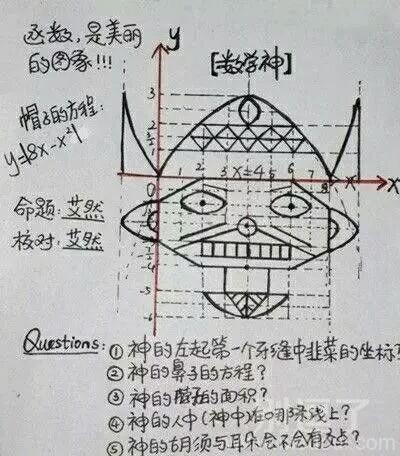 函数,是美丽
的图象!!!
y
[数学神]
帽子的方程:
y=|8x-x²|
3
2
1
0
1 2 3 x=4 5 6 7 8
x
命题: 艾然
核对: 艾然
-4
-5
-6
Questions: ① 神的左起第一个牙缝中韭菜的坐标
② 神的鼻子的方程?
③ 神的面积?
④ 神的人中(神中)在哪条线上?
⑤ 神的胡须与耳朵会不会有交点?